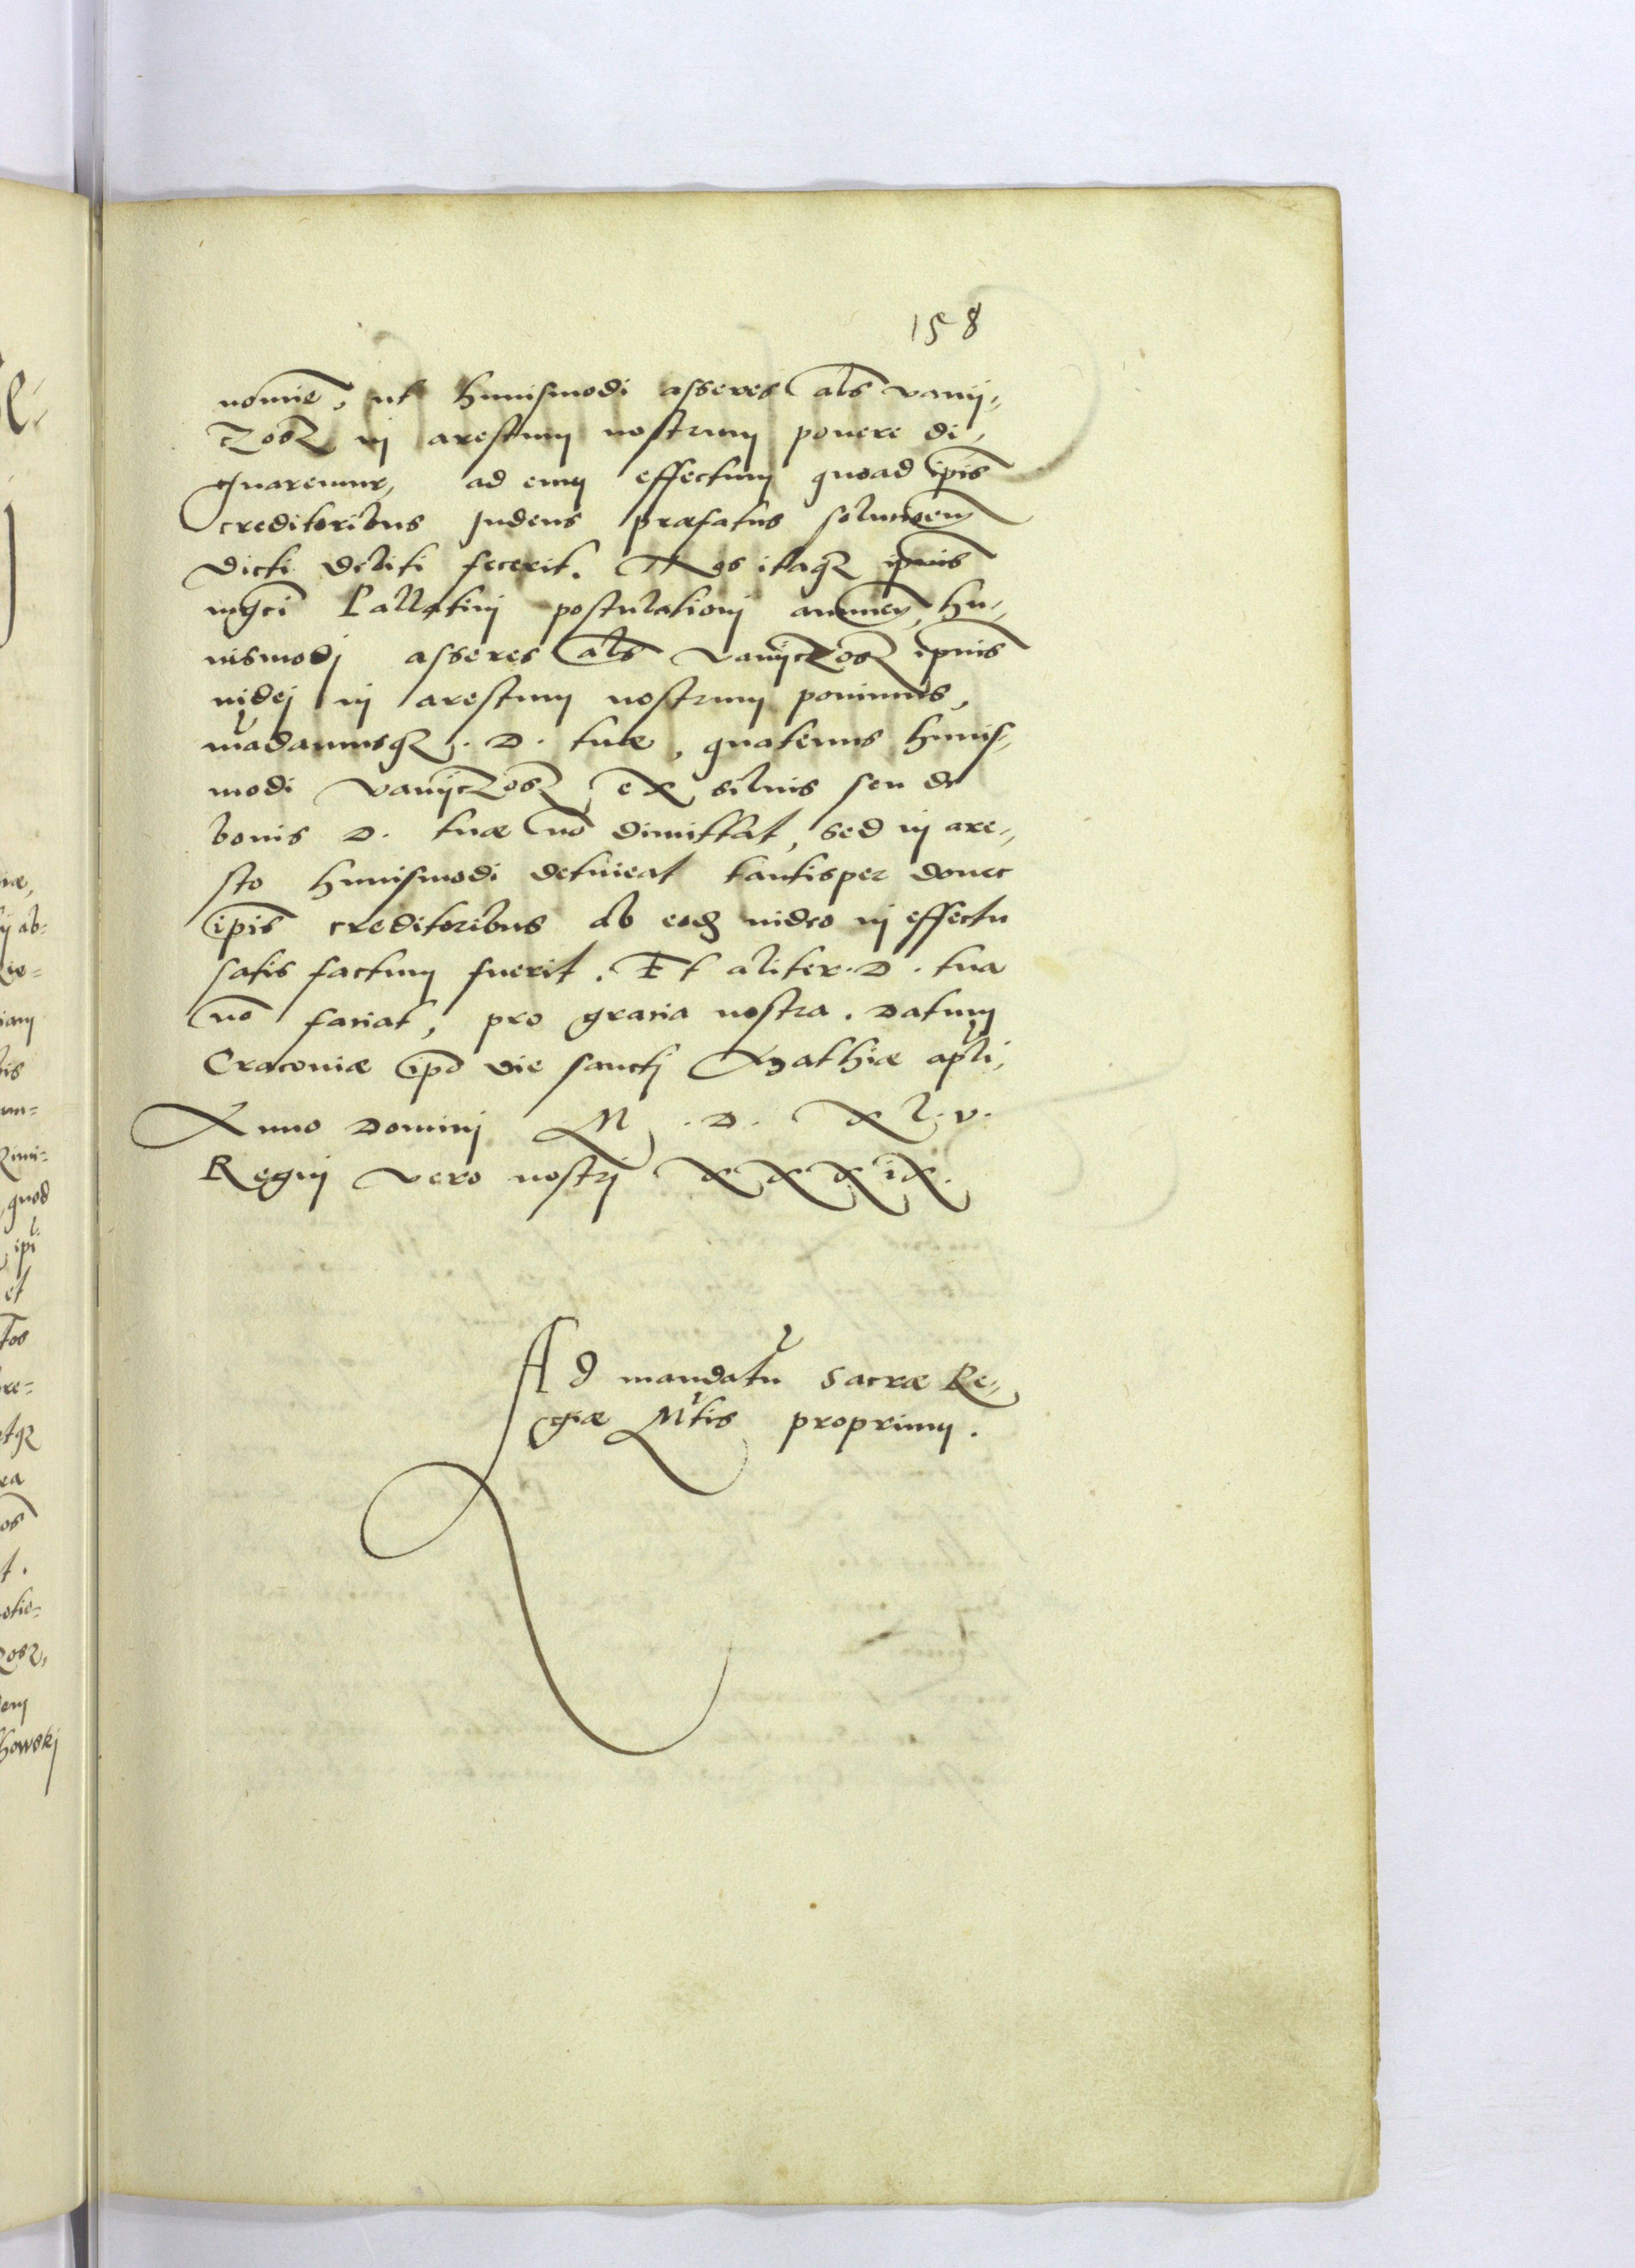 158
nomie, ut huiusmodi asseres als vanij-
czosz in arestum nostrum ponere di-
gnaremur, ad eum effectum quoad ipis
creditoribus Judeus præfatus soluncem
dicti debiti fecerit. Nos itaqz ipius
mgci Pallatini postulationi annuen, hu-
iusmodi asseres als vanijczosz ipius
iudei in arestum nostrum ponimus,
madamusqz. D. tuæ, quatenus huius-
modi vanijczosz ex siluis seu de
bonis D. tuæ no dimittat, sed in are-
sto huiusmodi detineat tantisper donec
ipis creditoribus ab eod iudeo in effectu
satis factum fuerit. Et aliter. D. tua
no faciat, pro gracia nostra. Datum
Cracoviæ ipo die sancti Mathiæ apli,
Anno Domini M. D. XL.V.
Regni vero nostri XXXIX.
Ad mandatu Sacræ Re-
giæ Mtis proprium.
iæ,
ij ab-
iam
quod
ipi
et
tos
re-
tqz
ea
osz,
em
howski